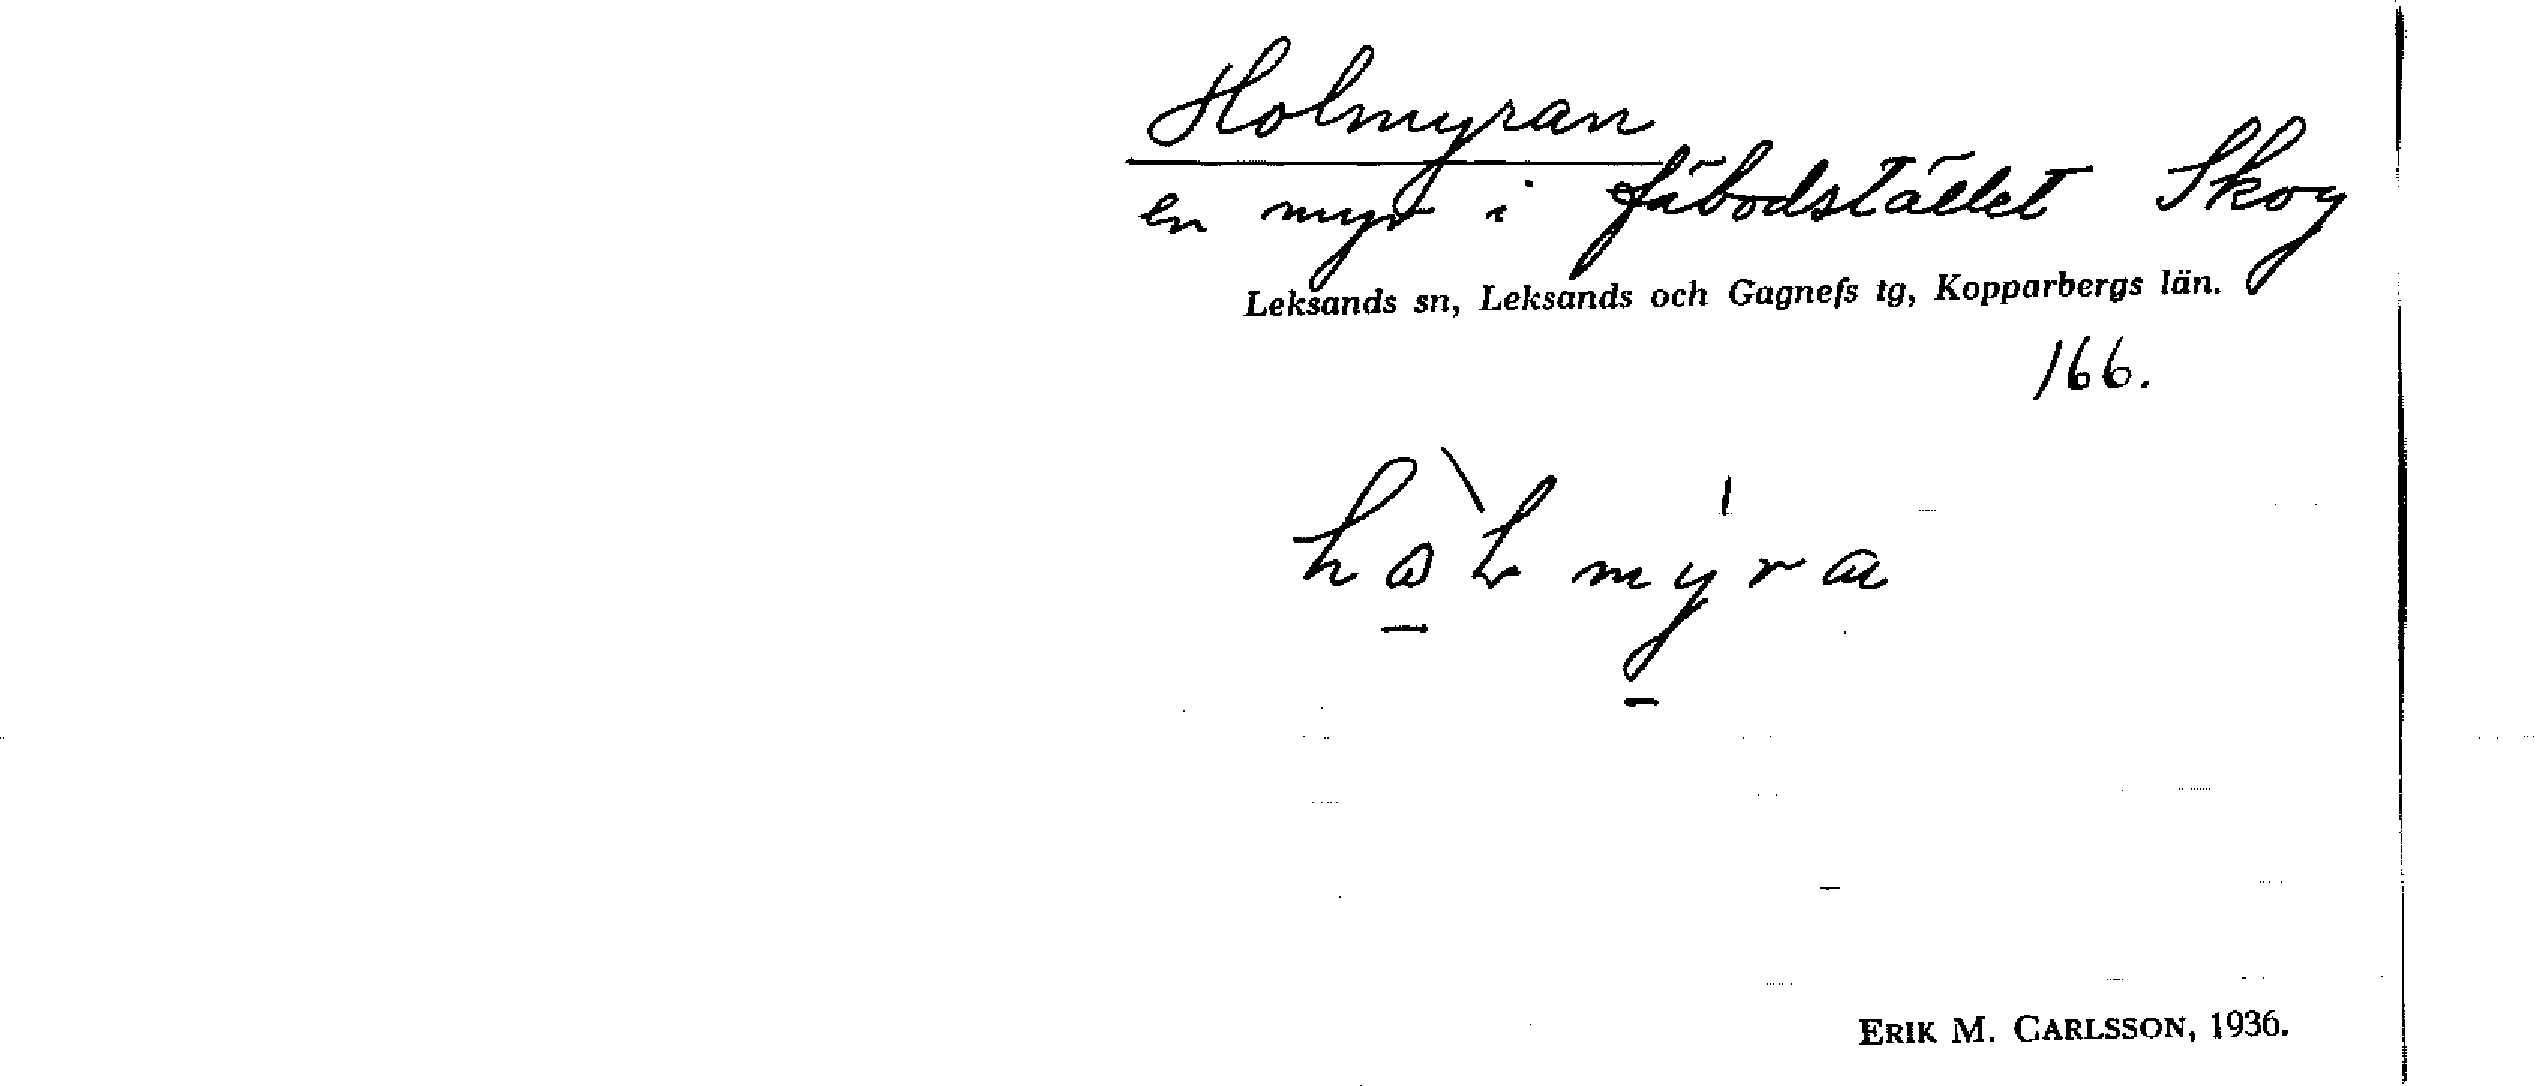 Holmyran
en myr i fäbodstället Skog
Leksands sn, Leksands och Gagnefs tg, Kopparbergs län.
166.
ERIK M. CARLSSON, 1936.